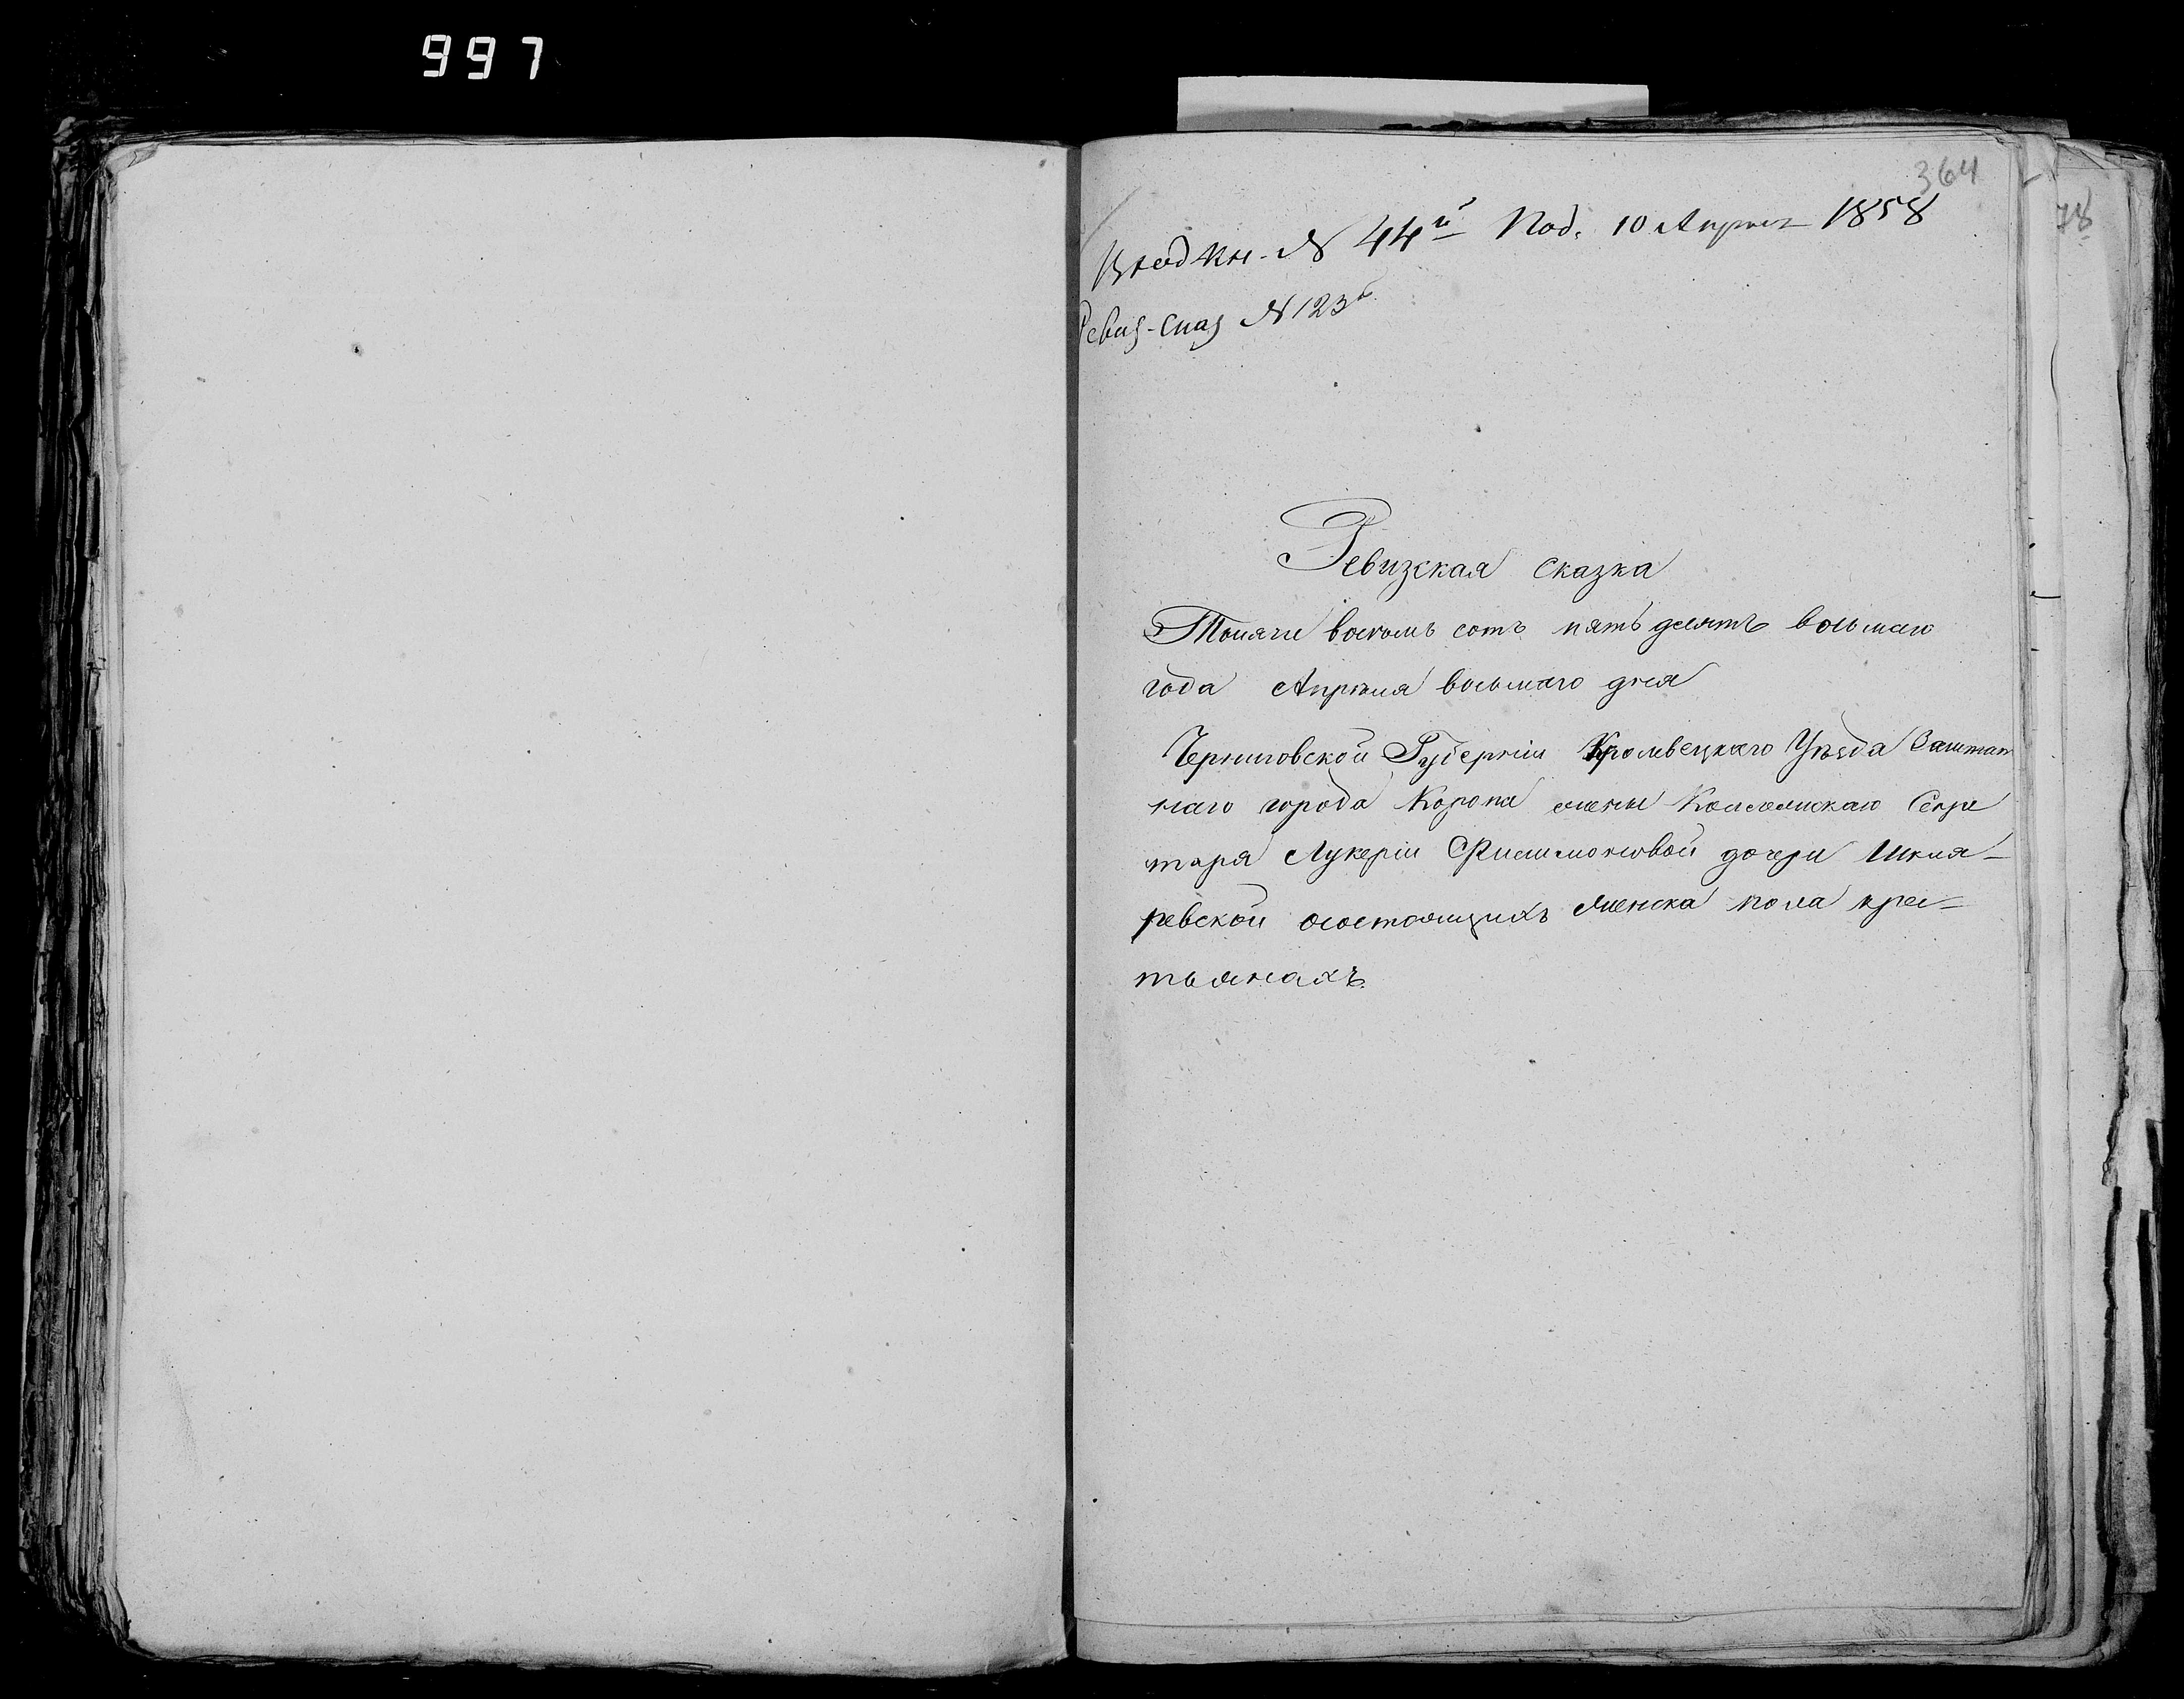 997
364
78
Вход кн. № 44й Под. 10 Апреля 1858
Ревиз-Сказ № 123
Ревизская Сказка
Тысячи восемь сотъ пять десятъ восьмаго
года Апреля восьмаго дня
Черниговской Губернiи Кролевецкаго Уѣзда Заштат
наго города Коропа жены Колежскаго Секре
таря Лукерiи Филимоновой дочери Шкля-
ревской осостоящихъ женска пола крес-
тьянахъ.